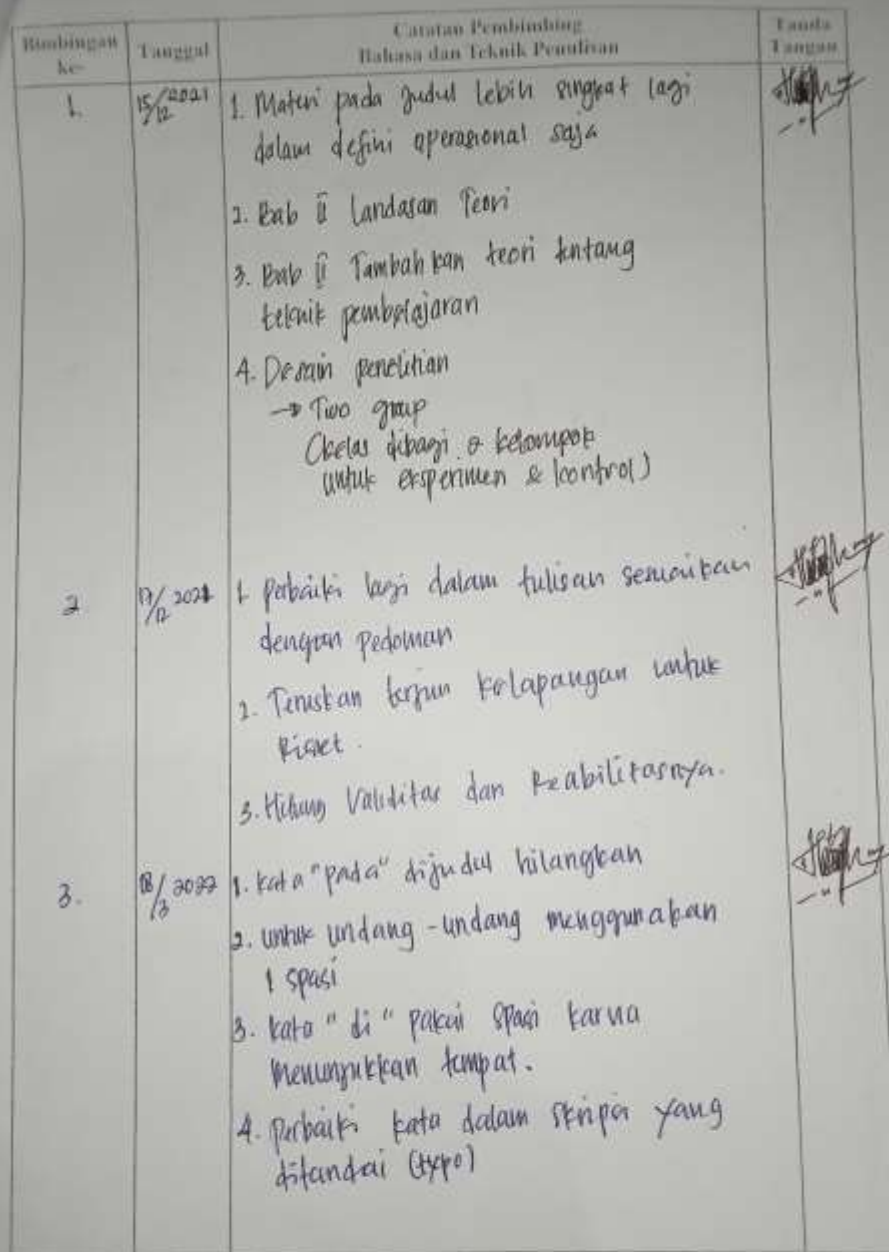 Bimbingan ke-
Tanggal
Catatan Pembimbing
Bahasa dan Teknik Penulisan
Tanda Tangan
1. 15/12 2021 1. Materi pada judul lebih singkat lagi
dalam defini operasional saja
2. Bab ii Landasan Teori
3. Bab ii Tambahkan teori tentang
teknik pembelajaran
4. Desain penelitian
→ Two group
(kelas dibagi 2 kelompok
untuk eksperimen & kontrol)
2. 17/12 2021 1. Perbaiki lagi dalam tulisan sesuaikan
dengan Pedoman
2. Teruskan terjun kelapangan untuk
Riset.
3. Hitung Validitas dan Reabilitasnya.
3. 18/3 2022 1. kata "pada" dijudul hilangkan
2. untuk undang-undang menggunakan
1 spasi
3. kata "di" pakai spasi karna
menunjukkan tempat.
4. perbaiki kata dalam skripsi yang
ditandai (typo)